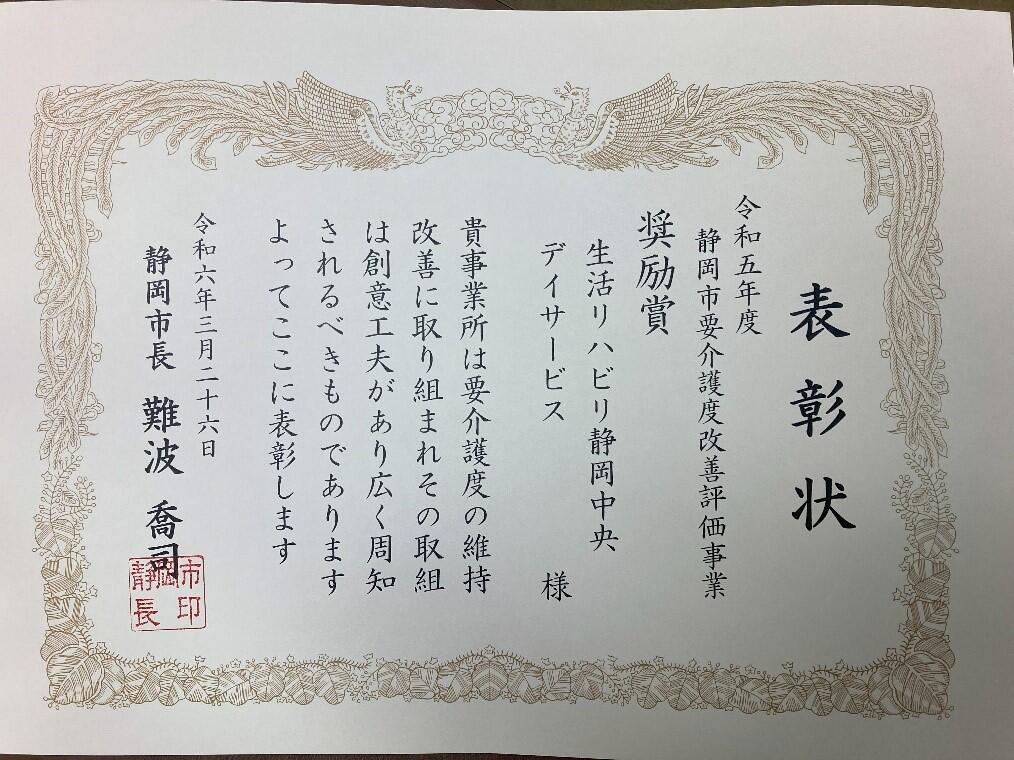 表彰状
令和五年度
静岡市要介護度改善評価事業
奨励賞
生活リハビリ静岡中央
デイサービス 様
貴事業所は要介護度の維持
改善に取り組まれその取組
は創意工夫があり広く周知
されるべきものであります
よってここに表彰します
令和六年三月二十六日
静岡市長 難波喬司
静岡市長印